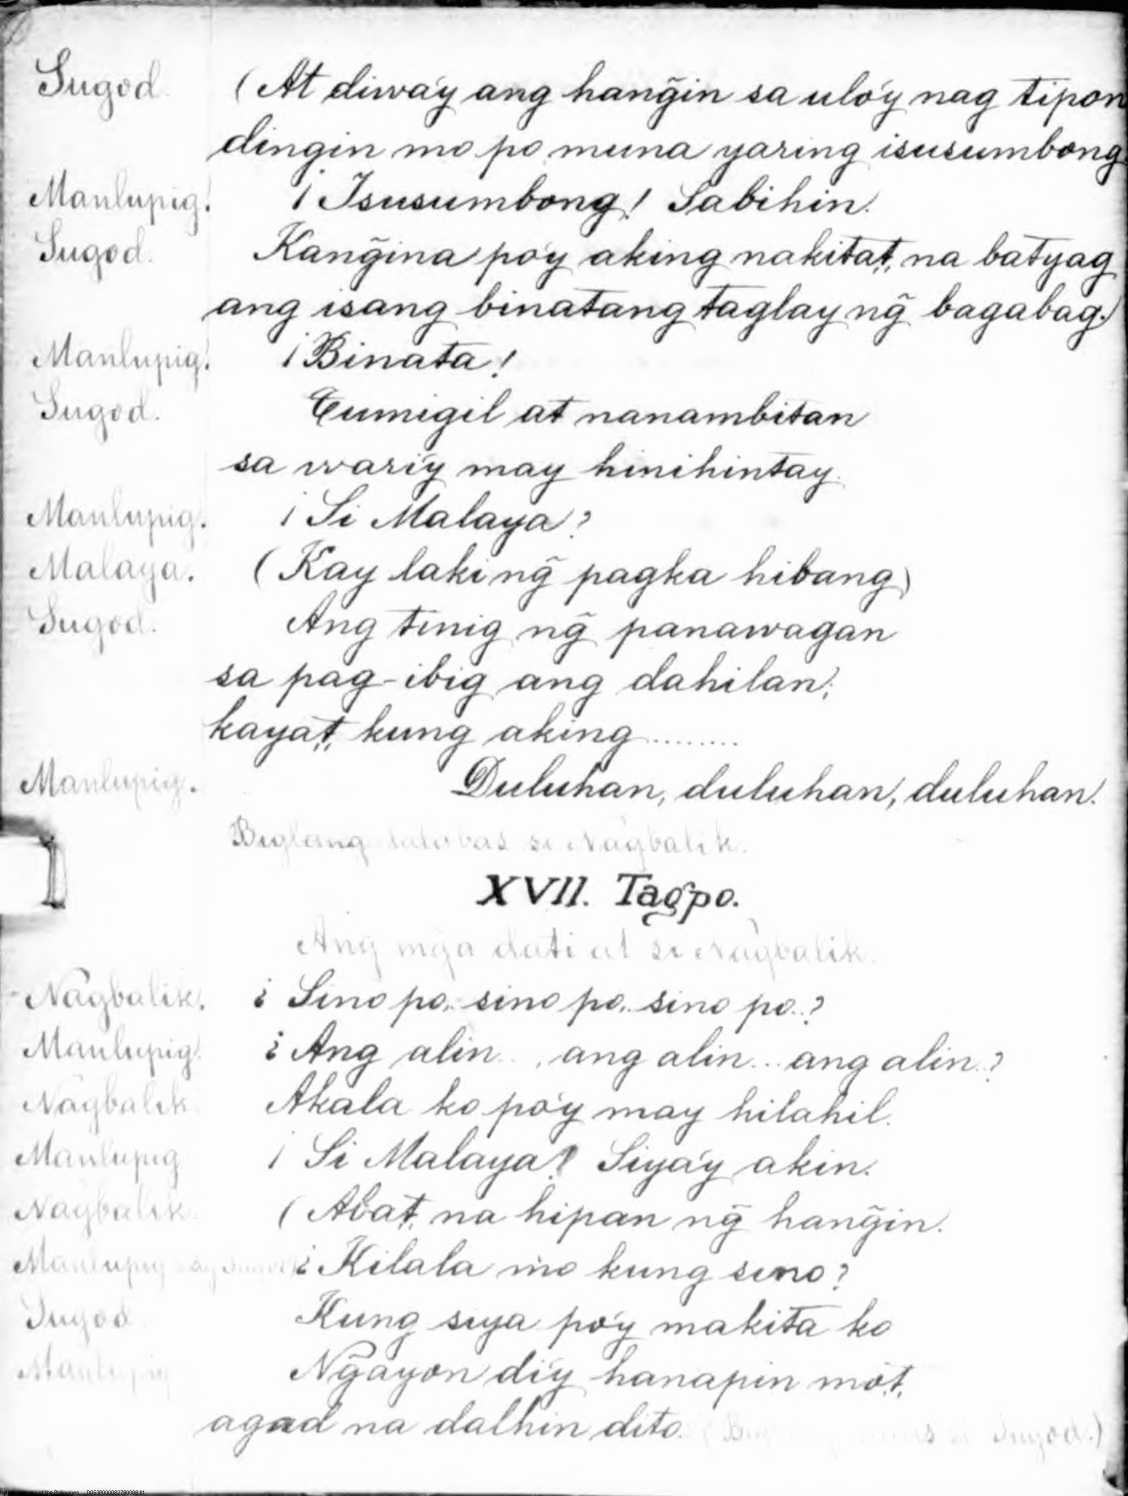 Sugod. (At diwa'y ang hang̃in sa ulo'y nag tipon
dingin mo po muna yaring isusumbong.
Manlupig. ¡Isusumbong! Sabihin.
Sugod. Kang̃ina po'y aking nakita't, na batyag
ang isang binatang taglay ng̃ bagabag.)
Manlupig. ¡Binata!
Sugod. Tumigil at nanambitan
sa wari'y may hinihintay.
Manlupig. ¡Si Malaya?
Malaya. (Kay laki ng̃ pagka hibang)
Sugod. Ang tinig ng̃ panawagan
sa pag-ibig ang dahilan;
kaya't, kung aking........
Manlupig. Duluhan, duluhan, duluhan.
Biglang lalabas si Nagbalik.
XVII. Tagpo.
Ang mg̃a dati at si Nagbalik.
Nagbalik. ¿Sino po.. sino po.. sino po..?
Manlupig. ¿Ang alin.. , ang alin... ang alin..?
Nagbalik. Akala ko po'y may hilahil.
Manlupig ¡Si Malaya? Siya'y akin.
Nagbalik. (Aba't, na hipan ng̃ hang̃in.
Manlupig kay Sugod ¿Kilala mo kung sino?
Sugod Kung siya po'y makita ko
Manlupig Ng̃ayon di'y hanapin mo't,
agad na dalhin dito. ( si Sugod.)